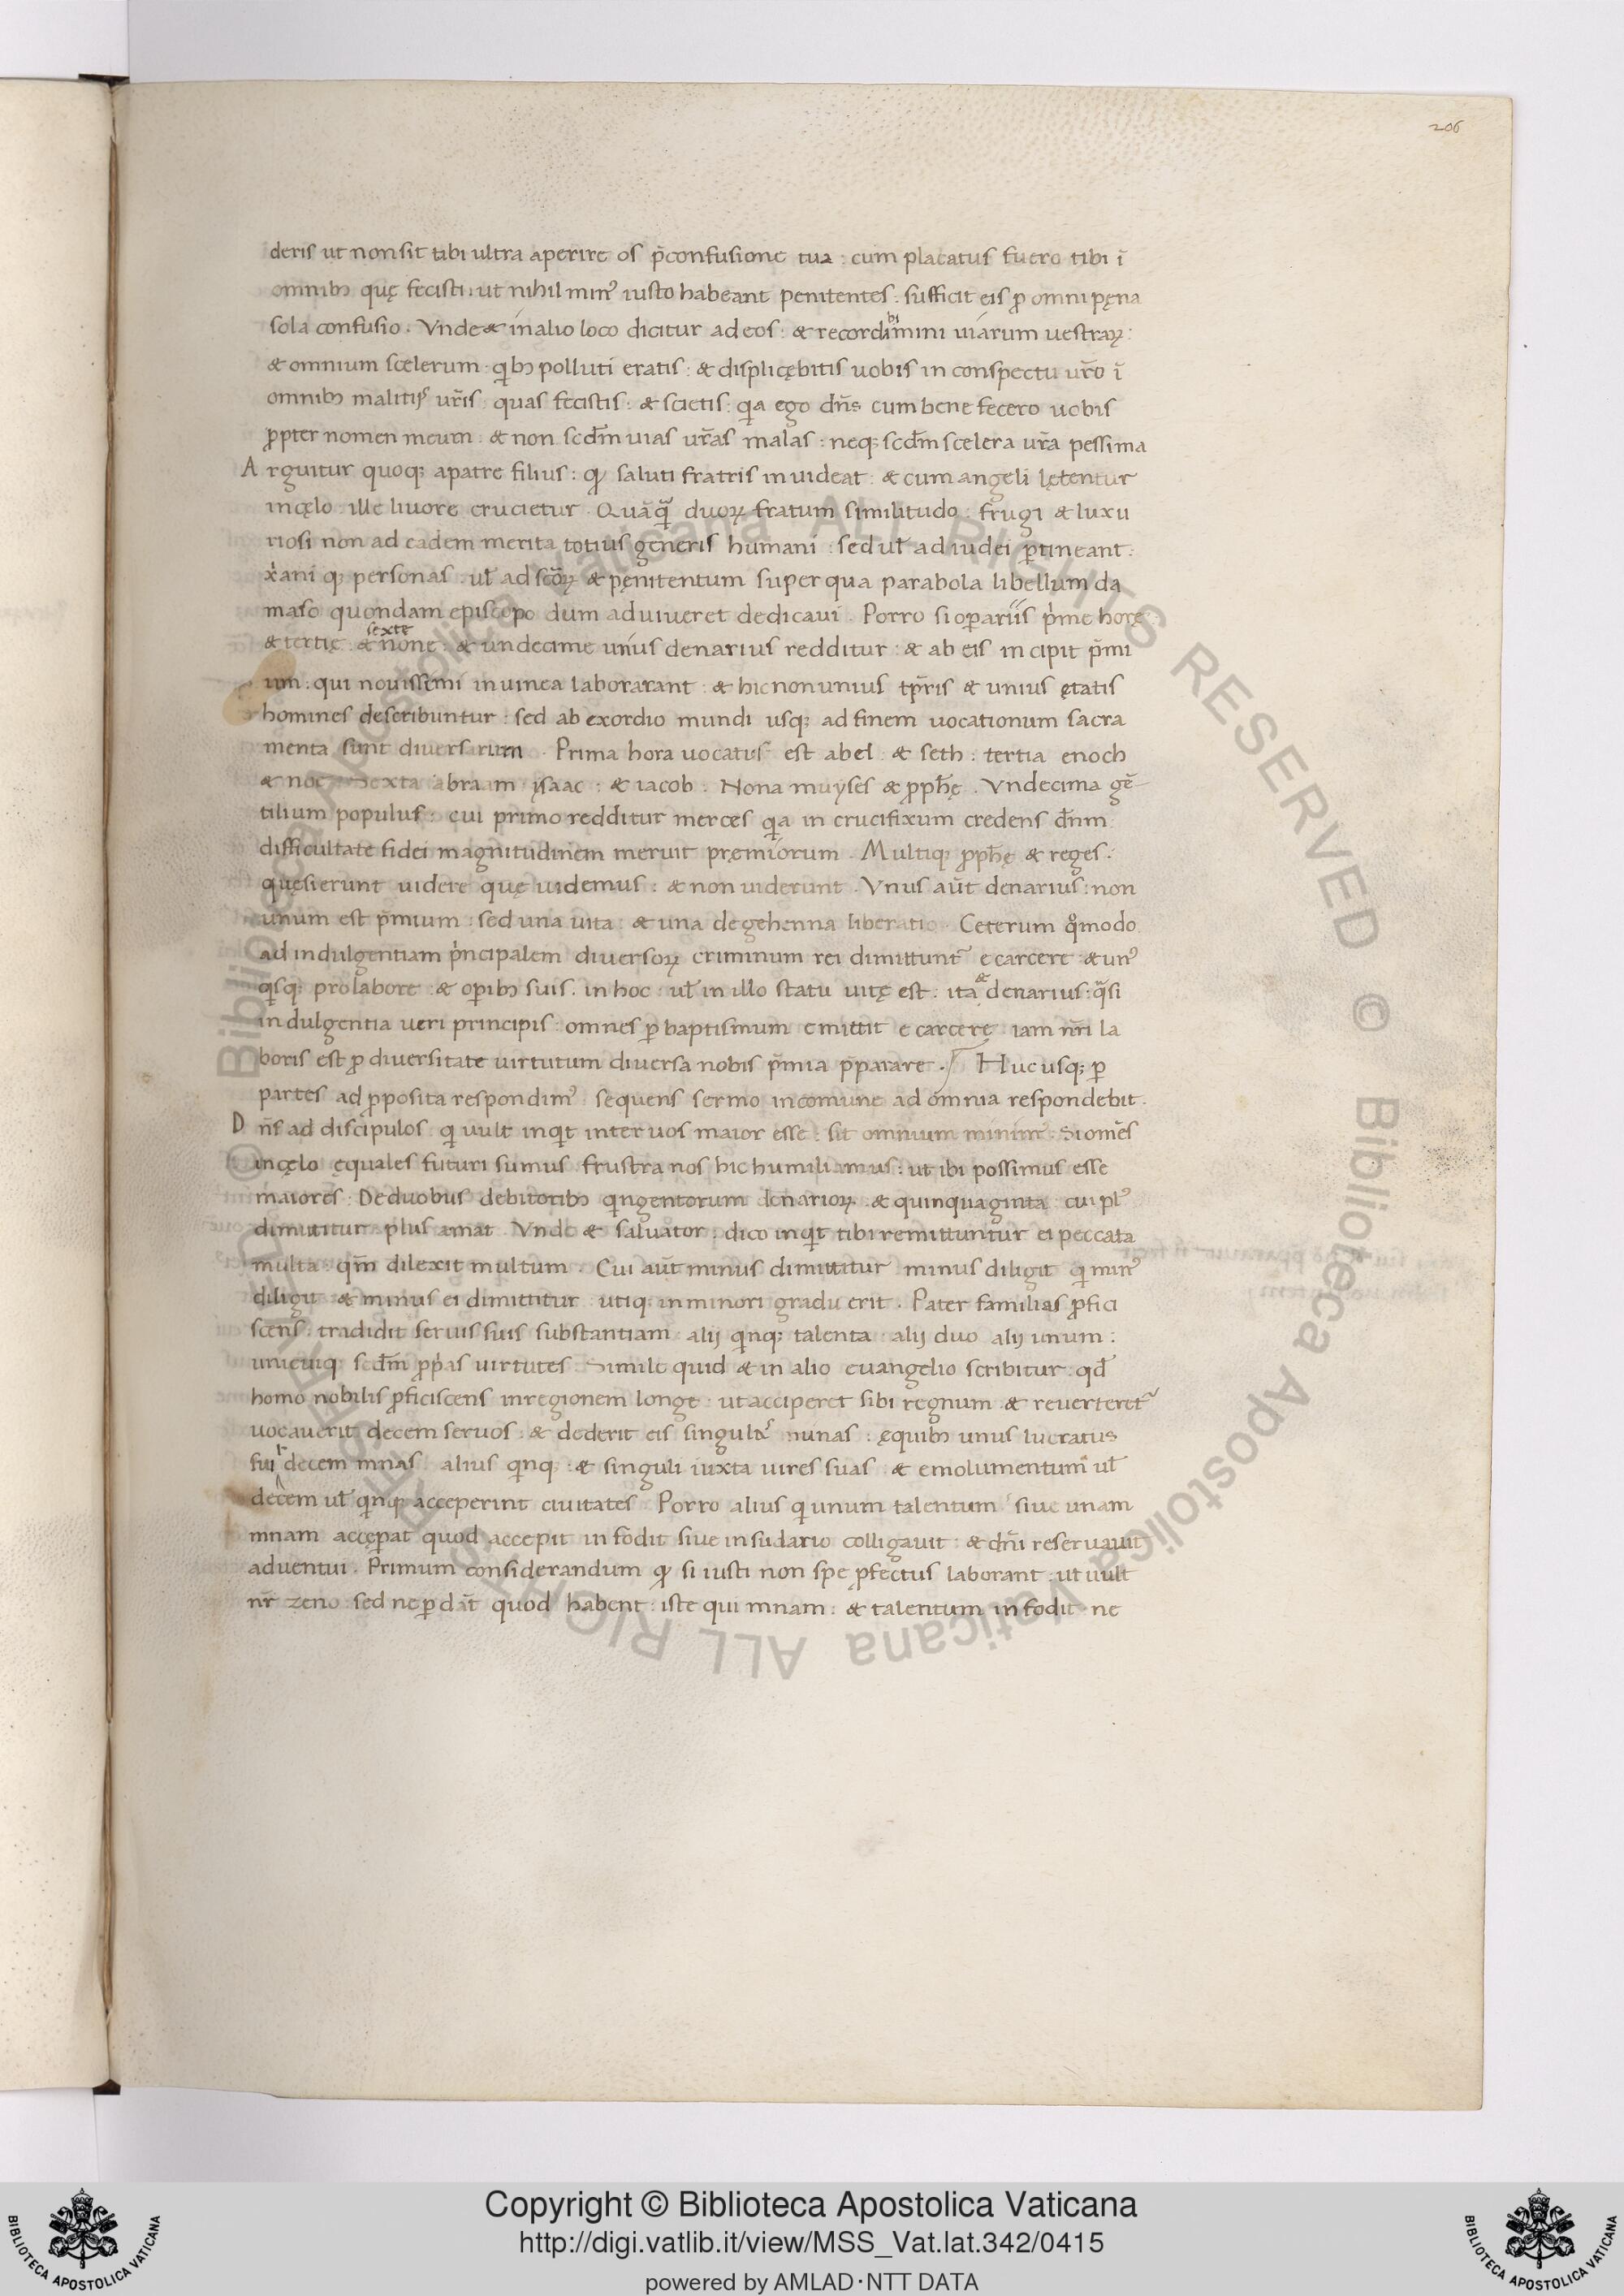 206
deris ut non sit tibi ultra aperire os p̄ confusione tua : cum placatus fuero tibi ī
omnibꝫ quę fecisti : ut nihil minꝰ iusto habeant penitentes . sufficit eis ꝓ omni pęna
sola confusio . Vnde & in alio loco dicitur ad eos : & recordibimini uiarum uestraꝝ :
& omnium scelerum qͥbꝫ polluti eratis : & displicębitis uobis in conspectu ur̄o ī
omnibꝫ malitijs ur̄is quas fecistis : & scietis : qͥa ego dn̄s cum bene fecero uobis
ꝓpter nomen meum : & non scd̄m uias ur̄as malas : neqꝫ scd̄m scelera ur̄a pessima
Arguitur quoqꝫ a patre filius : qͦ saluti fratris inuideat : & cum angeli lętentur
in cęlo : ille liuore crucietur . Quāqͣ̄ duoꝝ fratum similitudo : frugi & luxu
riosi non ad eadem merita totius generis humani : sed ul̄ ad iudei ꝑtineant :
xͥani qꝫ personas . ul̄ ad sc̄oꝝ & pęnitentum super qua parabola libellum da
maso quondam episcopo dum aduiueret dedicaui . Porro si oꝑariis pͥme horę
& tertię : & sexte none : & undecime unius denarius redditur : & ab eis incipit p̄mi
um : qui nouissimi in uinea laborarant : & hic non unius tp̄ris & unius ętatis
homines describuntur : sed ab exordio mundi usqꝫ ad finem uocationum sacra
menta sunt diuersarum . Prima hora uocatus est abel & seth : tertia enoch
& noe Sexta abraam ysaac : & iacob . Nona muyses & ꝓph̄ę . Vndecima gē
tilium populus : cui primo redditur merces qͥa in crucifixum credens dn̄m
difficultate fidei magnitudinem meruit pręmiorum . Multiqꝫ ꝓph̄ę & reges .
quęsierunt uidere quę uidemus : & non uiderunt . Vnus aūt denarius : non
unum est p̄mium : sed una uita : & una de gehenna liberatio . Ceterum qͦmodo
ad indulgentiam pͥncipalem diuersoꝝ criminum rei dimittunt᷑ e carcere & unꝰ
qͥsqꝫ pro labore : & oꝑibꝫ suis . in hoc : ul̄ in illo statu uitę est . ita & denarius : qͣsi
indulgentia ueri principis : omnes ꝑ baptismum emittit e carcerę iam nr̄i la
boris est ꝓ diuersitate uirtutum diuersa nobis p̄mia p̄parare . Huc usqꝫ ꝑ
partes ad ꝓposita respondimꝰ . sequens sermo in comune ad omnia respondebit .
Dn̄s ad discipulos qͥ uult inqͥt inter uos maior esse : sit omnium minimꝰ . Si om̄es
in cęlo ęquales futuri sumus frustra nos hic humiliamus : ut ibi possimus esse
maiores : De duobus debitoribꝫ qͥngentorum denarioꝝ . & quinquaginta cui plꝰ
dimittitur plus amat . Vnde & saluator : dico inqͥt tibi remittuntur ei peccata
multa : qm̄ dilexit multum . Cui aūt minus dimittitur minus diligit qͥ minꝰ
diligit & minus ei dimittitur utiqꝫ in minori gradu erit . Pater familias ꝓfici
scens : tradidit seruis suis substantiam : alij qͥnqꝫ talenta : alij duo alij unum :
unicuiqꝫ scd̄m ꝓpͥas uirtutes . Simile quid & in alio euangelio scribitur : qd̄
homo nobilis ꝓficiscens in regionem longe : ut acciperet sibi regnum & reuerteret᷑
uocauerit decem seruos : & dederit eis singulas mnas : ę quibꝫ unus lucratus
fuit decem mnas alius qͥnqꝫ : & singuli iuxta uires suas & emolumentum ul̄
decem ul̄ qͥnqꝫ acceperint ciuitates . Porro alius qͥ unum talentum siue unam
mnam accęꝑat quod accepit infodit siue in sudario colligauit : & dn̄i reseruauit
aduentui . Primum considerandum qͦ si iusti non spe ꝓfectus laborant ut uult
nr̄ zeno sed ne ꝑdāt quod habent : iste qui mnam : & talentum infodit ne
© Biblioteca Apostolica Vaticana ALL RIGHTS RESERVED © Biblioteca Apostolica Vaticana ALL RIGHTS RESERVED
Copyright © Biblioteca Apostolica Vaticana
http://digi.vatlib.it/view/MSS_Vat.lat.342/0415
powered by AMLAD·NTT DATA
BIBLIOTECA APOSTOLICA VATICANA
BIBLIOTECA APOSTOLICA VATICANA